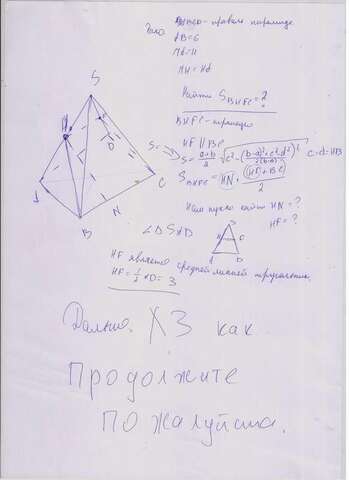 Дано:
AB=6
Найти S BHFC = ?
BHFC - трапеция
HF || BC
S =
S = a+b/2 √c² - ((b-a)²+c²-d²/2(b-a))² c=d=HB
S BHFC = HN · (HF+BC)/2
Нам нужно найти HN = ?
HF = ?
HF является средней линией треугольника.
HF = 1/2 AD = 3
S
H
F
D
A
C
B
N
Дальше. ХЗ как
Продолжите
пожалуйста.